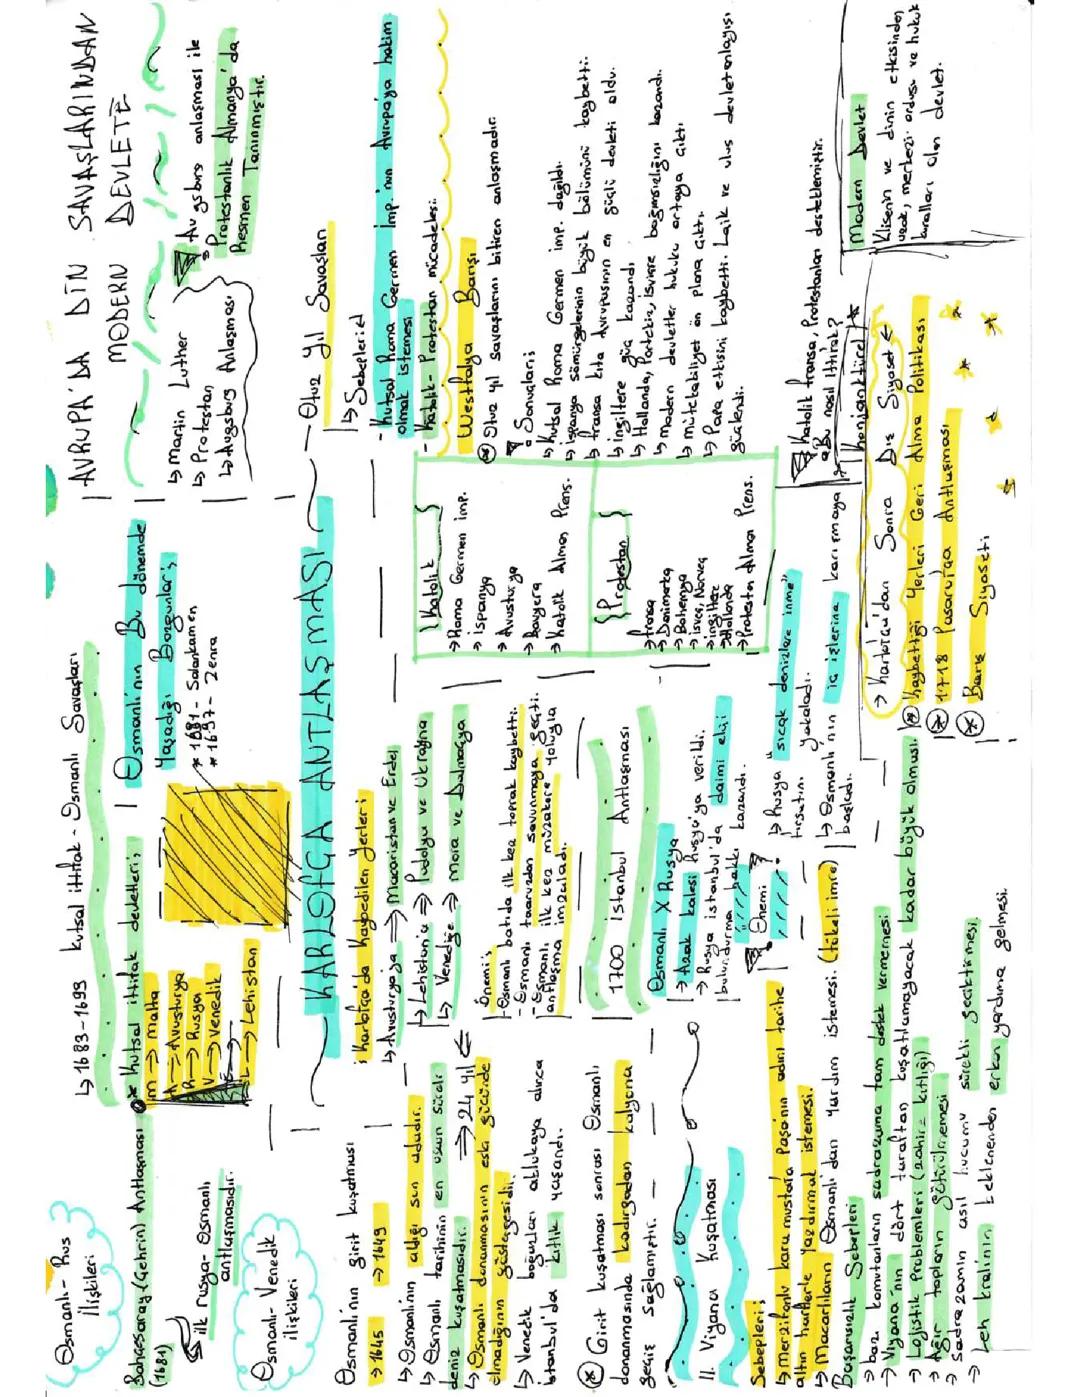 Osmanlı - Rus
İlişkileri
Bahçesaray (Çehrin) Antlaşması
(1681)
ilk rusya-osmanlı
antlaşmasıdır.
Osmanlı-Venedik
ilişkileri
Osmanlı'nın girit kuşatması
→ 1645 → 1649
↳ Osmanlı'nın aldığı son adadır.
↳ Osmanlı tarihinin en uzun süreli
deniz kuşatmasıdır. ⇒ 24 yıl
↳ Osmanlı donanmasının eski gücünde
olmadığının göstergesidir.
↳ Venedik boğazları ablukaya alınca
istanbul'da kıtlık yaşandı.
Girit kuşatması sonrası Osmanlı
donanmasında kadırgadan kalyona
geçiş sağlamıştır.
II. Viyana Kuşatması
Sebepleri;
↳ merzifonlu kara mustafa Paşa'nın adını tarihe
altın harflerle yazdırmak istemesi.
↳ Macarlıların Osmanlı'dan yardım istemesi. (tökeli imre)
Başarısızlık Sebepleri
→ bazı komutanların sadrazama tam destek vermemesi
→ Viyana'nın dört taraftan kuşatılamayacak kadar büyük olması.
→ Lojistik Problemleri (zahire kıtlığı)
→ Ağır topların götürülmemesi
→ Sadrazamın asıl hücumu sürekli geciktirmesi.
→ Leh kralının beklenenden erken yardıma gelmesi.
↳ 1683-1699 kutsal ittifak - Osmanlı Savaşları
* Kutsal ittifak devletleri;
m → malta
A → Avusturya
R → Rusya
V → Venedik
L → Lehistan
Osmanlı'nın Bu dönemde
Yaşadığı Bozgunlar;
* 1691 - Salankamen
* 1697 - Zenta
KARLOFÇA ANTLAŞMASI
Karlofça'da kaybedilen yerler;
↳ Avusturya ⇒ Macaristan ve Erdel
↳ Lehistan'a ⇒ Podolya ve Ukrayna
↳ Venediğe ⇒ mora ve Dalmaçya
Önemi;
- Osmanlı batıda ilk kez toprak kaybetti.
- Osmanlı taaruzdan savunmaya geçti.
- Osmanlı ilk kez müzakere yoluyla
antlaşma imzaladı.
1700 istanbul Antlaşması
Osmanlı X Rusya
→ Azak kalesi Rusya'ya verildi.
→ Rusya istanbul'da daimi elçi
bulundurma hakkı kazandı.
Önemi
↳ Rusya "sıcak denizlere inme"
fırsatını yakaladı.
↳ Osmanlı'nın iç işlerine karışmaya
başladı.
AVRUPA'DA DİN SAVAŞLARINDAN
MODERN DEVLETE
↳ Martin Luther
↳ Protestan
↳ Augsburg Anlaşması
Augsburg anlaşması ile
Protestanlık Almanya'da
Resmen Tanınmıştır.
Otuz Yıl Savaşları
↳ Sebepleri;
- Kutsal Roma Germen imp.'nın Avrupa'ya hakim
olmak istemesi
- katolik - Protestan mücadelesi.
Westfalya Barışı
Otuz yıl savaşlarını bitiren anlaşmadır.
Sonuçları;
↳ Kutsal Roma Germen imp. dağıldı.
↳ ispanya sömürgelerinin büyük bölümünü kaybetti.
↳ fransa kıta Avrupasının en güçlü devleti oldu.
↳ ingiltere güç kazandı
↳ Hollanda, Portekiz, isviçre bağımsızlığını kazandı.
↳ modern devletler hukuku ortaya çıktı
↳ mütekabiliyet ön plana çıktı
↳ Papa etkisini kaybetti. Laik ve ulus devlet anlayışı
güçlendi.
{Katolik}
→ Roma Germen imp.
→ ispanya
→ Avusturya
→ Bavyera
→ Katolik Alman Prens.
{Protestan}
→ fransa
→ Danimarka
→ Bohemya
→ isveç, Norveç
→ ingiltere
→ Hollanda
→ Protestan Alman Prens.
Katolik fransa, Protestanları desteklemiştir.
Bu nasıl ittifak?
konjonktürel
Modern Devlet
Klisenin ve dinin etkisinden
uzak, merkezi ordusu ve hukuk
kuralları olan devlet.
→ Karlofça'dan Sonra Dış Siyaset ←
* Kaybettiği Yerleri Geri Alma Politikası
* 1718 Pasarofça Antlaşması
* Barış Siyaseti